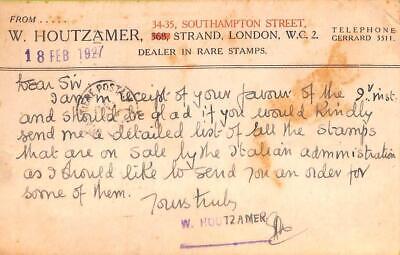 FROM.......
34-35, SOUTHAMPTON STREET,
W. HOUTZAMER, 368, STRAND, LONDON, W.C. 2.
TELEPHONE
GERRARD 5511.
DEALER IN RARE STAMPS.
18 FEB 1927
Dear Sir.
I am in receipt of your favour of the 9th inst
and should be glad if you would kindly
send me a detailed list of all the stamps
that are on sale by the Italian administration
as I should like to send you an order for
some of them.
Yours truly
W. HOUTZAMER